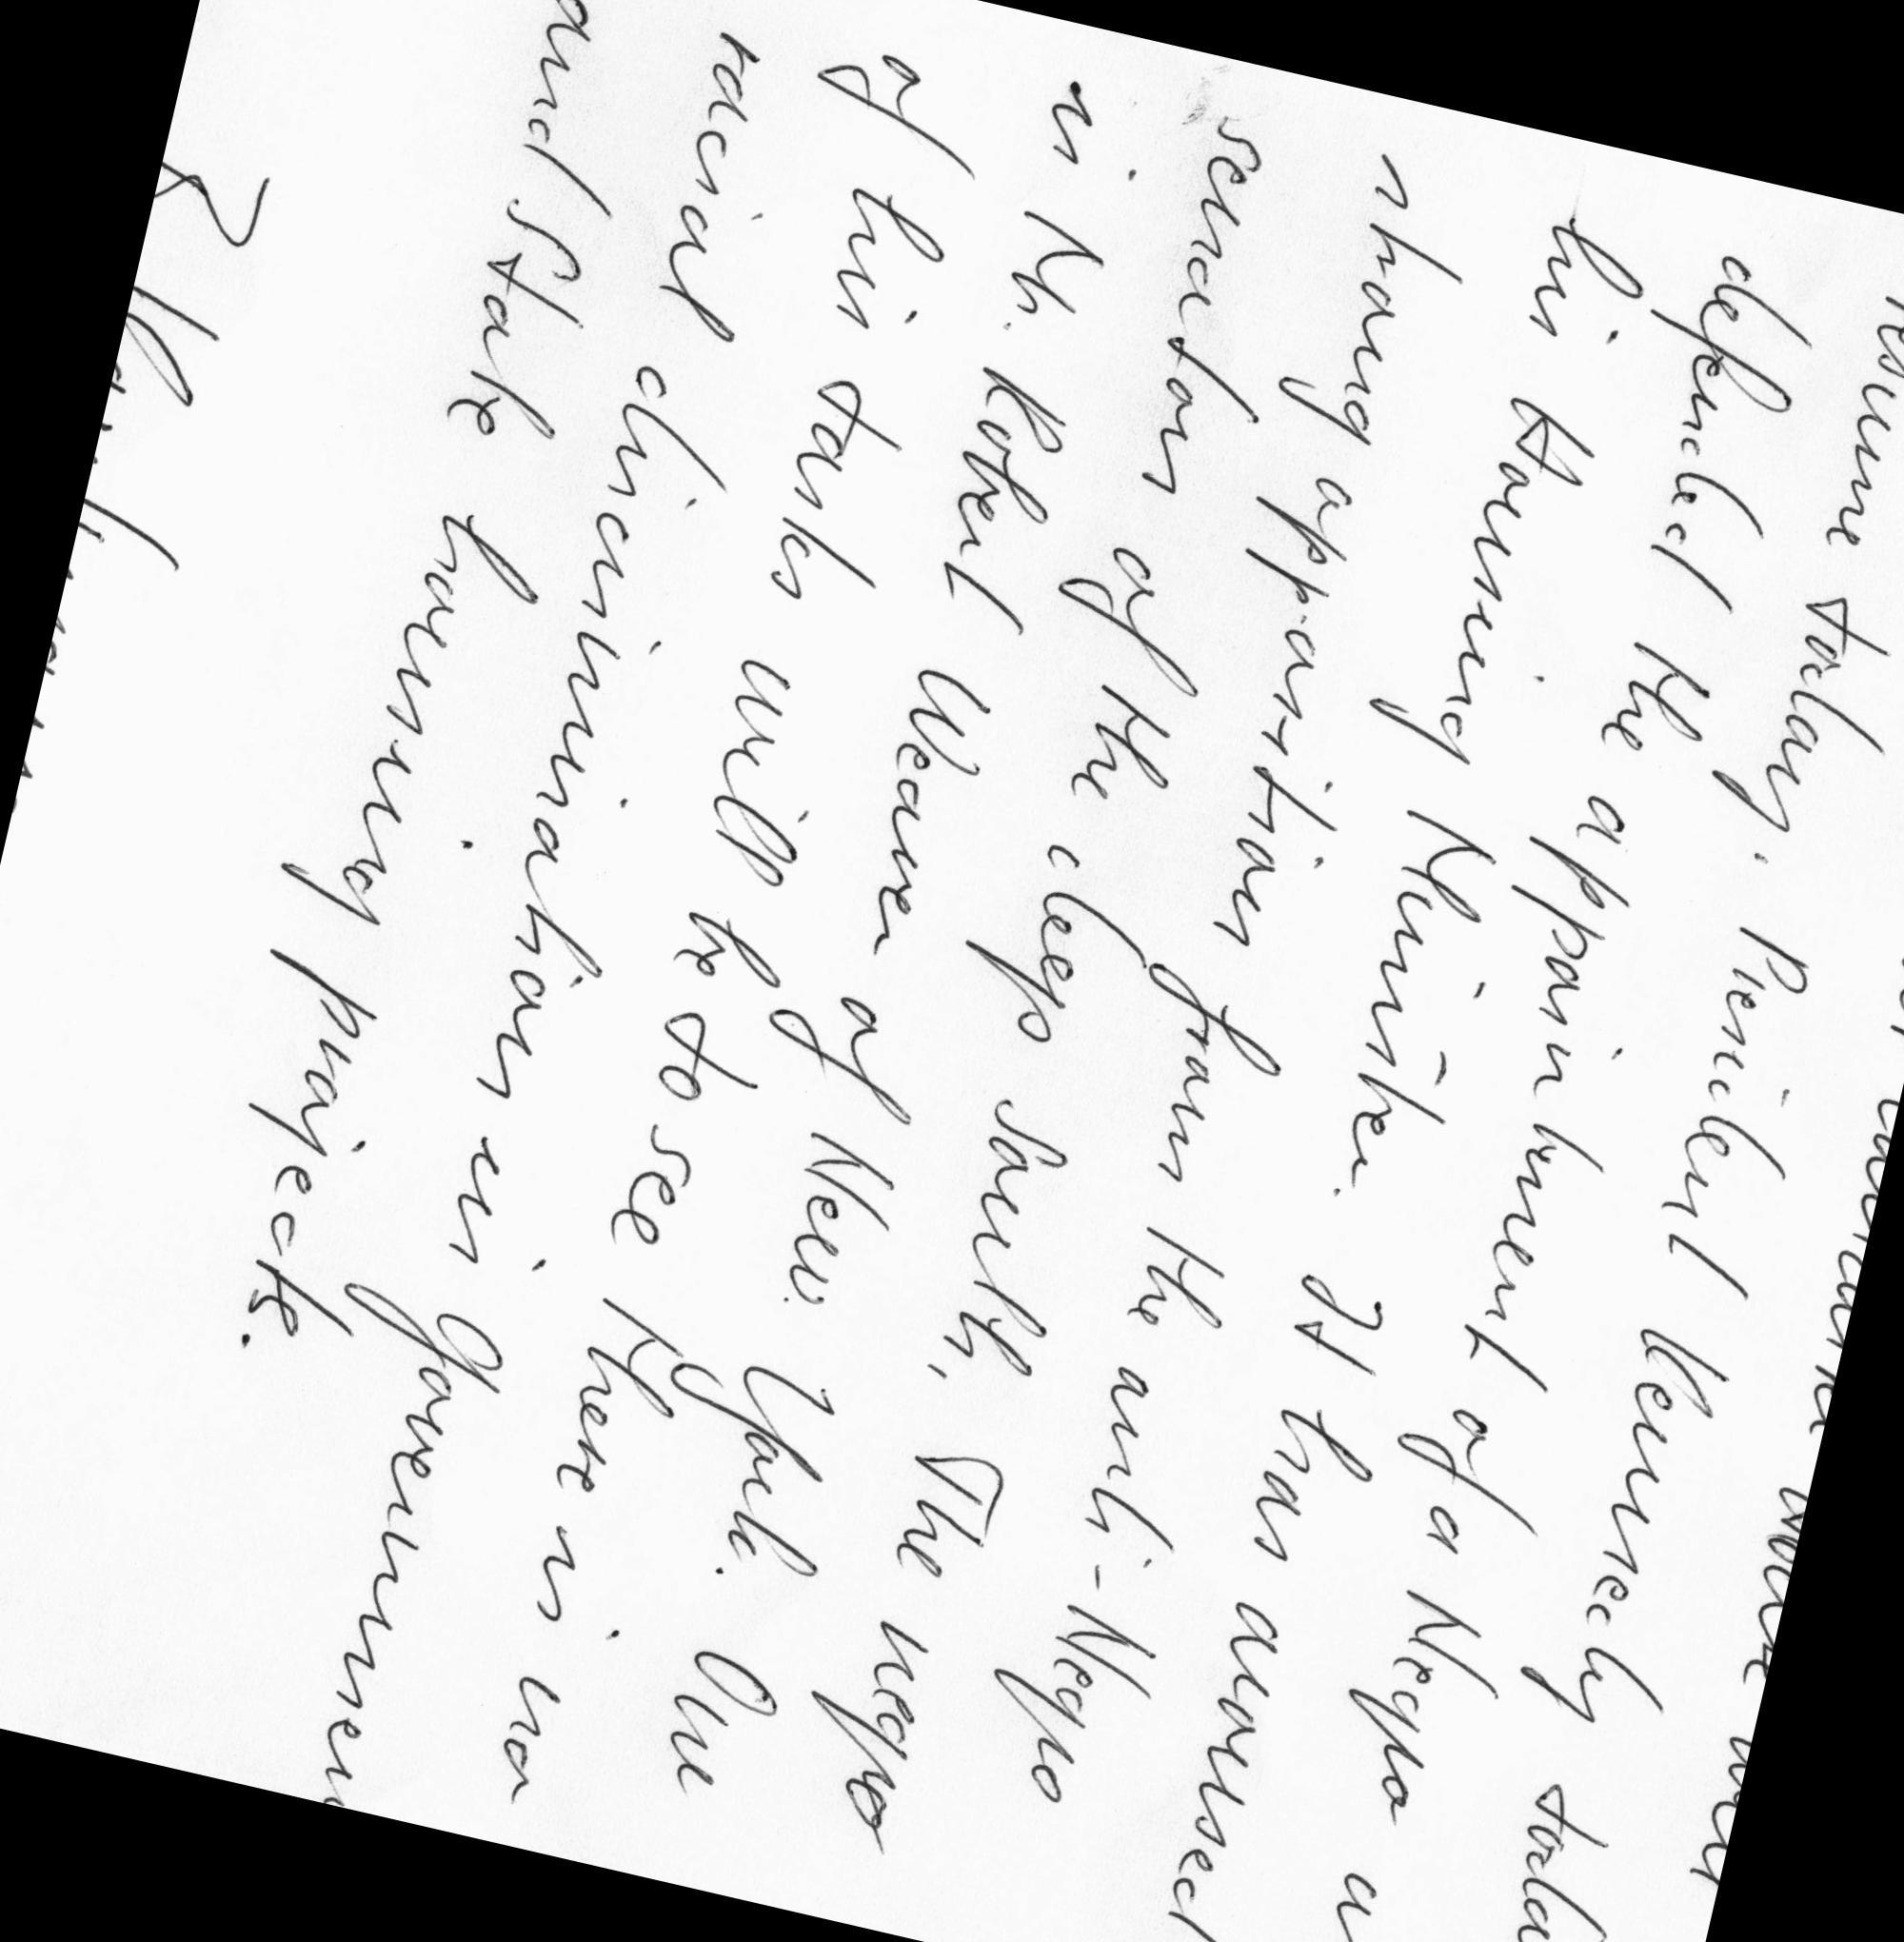 resume today. President Kennedy today
defended the appointment of a Negro as
his Housing Minister. It has aroused
strong opposition from the anti-Negro
senators of the deep South. The negro
is Mr. Robert Weaver of New York. One
of his tasks will be to see there is no
racial discrimination in Government
and State housing projects.